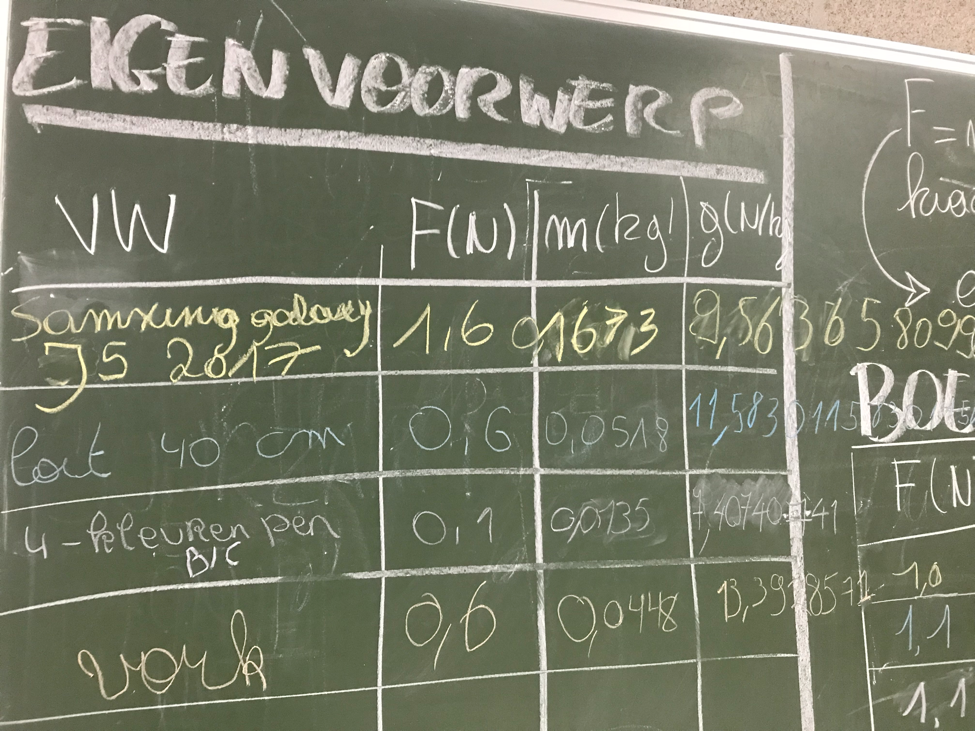 EIGEN VOORWERP
VW F(N) m(kg) g(N/kg
Samsung galaxy
J5 2017 1,6 0,1673 9,563658099
lat 40 cm 0,6 0,0518 11,583011583
4-kleuren pen
BIC 0,1 0,0135 7,40740
vork 0,6 0,0448 13,3928571
F =
BOE
F(N
1,0
1,1
1,1